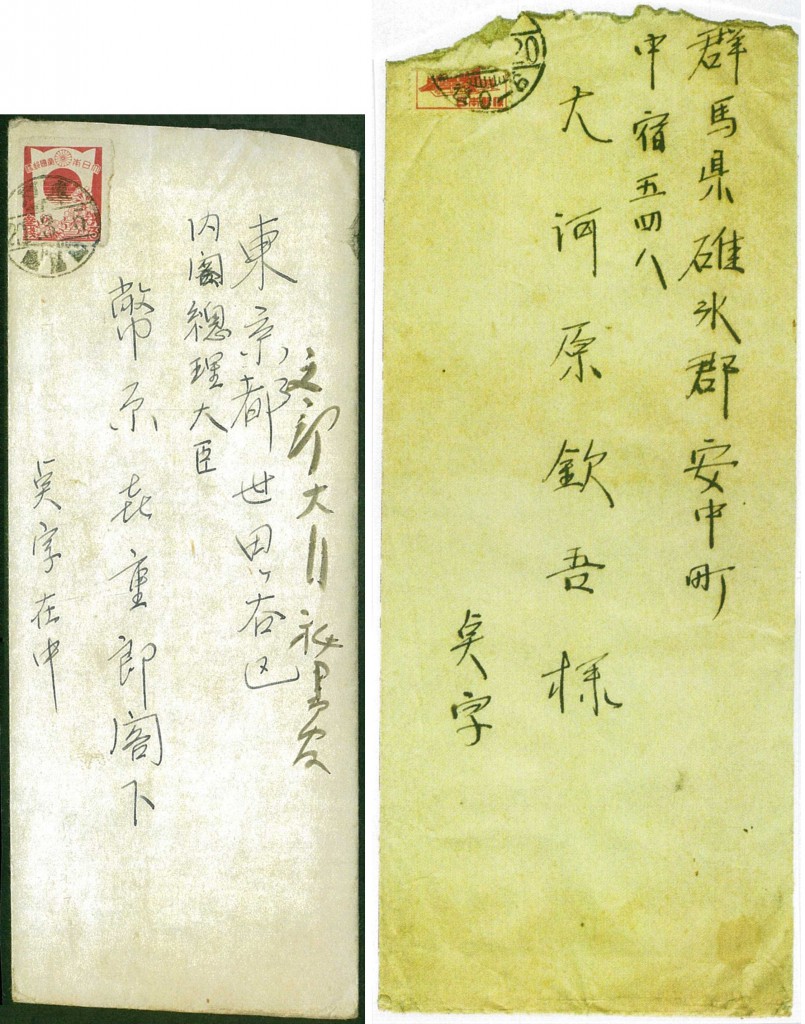 文部大臣秘書官
東京都世田谷区
内閣總理大臣
幣原喜重郎閣下
奌字在中
群馬県碓氷郡安中町
中宿五四八
大河原欽吾様
奌字